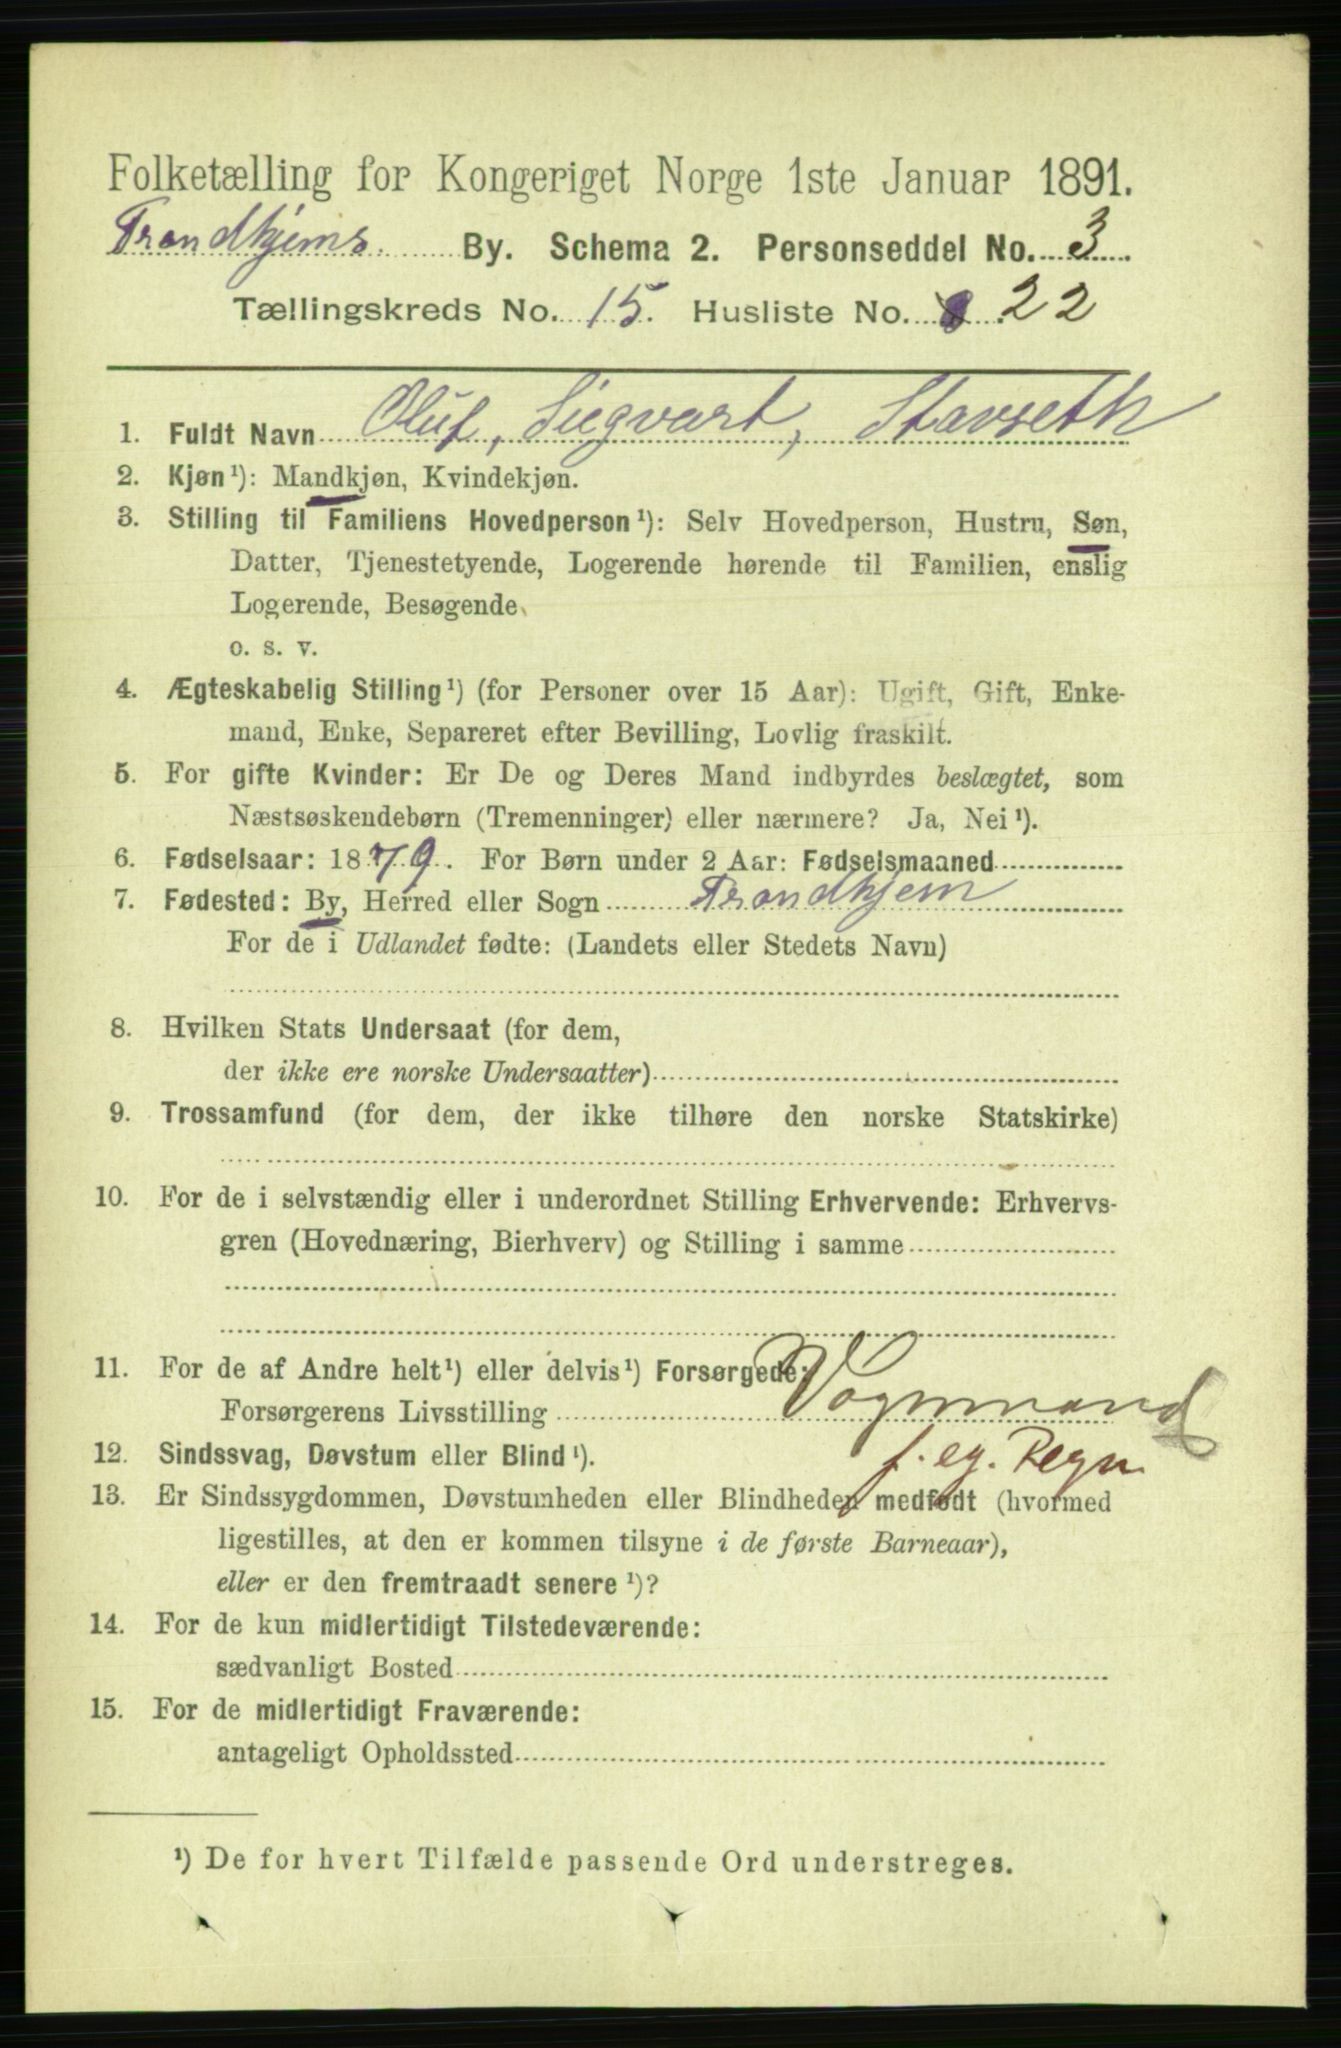 Folketælling for Kongeriget Norge 1ste Januar 1891.
Trondhjems By. Schema 2. Personseddel No. 3.
Tællingskreds No. 15. Husliste No. 22
1. Fuldt Navn Oluf, Siegvart, Stavseth
2. Kjøn ¹): Mandkjøn, Kvindekjøn.
3. Stilling til Familiens Hovedperson ¹): Selv Hovedperson, Hustru, Søn,
Datter, Tjenestetyende, Logerende hørende til Familien, enslig
Logerende, Besøgende
o. s. v.
4. Ægteskabelig Stilling ¹) (for Personer over 15 Aar): Ugift, Gift, Enke-
mand, Enke, Separeret efter Bevilling, Lovlig fraskilt.
5. For gifte Kvinder: Er De og Deres Mand indbyrdes beslægtet, som
Næstsøskendebørn (Tremenninger) eller nærmere? Ja, Nei ¹).
6. Fødselsaar: 1879. For Børn under 2 Aar: Fødselsmaaned
7. Fødested: By, Herred eller Sogn Trondhjem
For de i Udlandet fødte: (Landets eller Stedets Navn)
8. Hvilken Stats Undersaat (for dem,
der ikke ere norske Undersaatter)
9. Trossamfund (for dem, der ikke tilhøre den norske Statskirke)
10. For de i selvstændig eller i underordnet Stilling Erhvervende: Erhvervs-
gren (Hovednæring, Bierhverv) og Stilling i samme
11. For de af Andre helt ¹) eller delvis ¹) Forsørgede:
Forsørgerens Livsstilling Vognmand
f. eg. Regn.
12. Sindssvag, Døvstum eller Blind ¹).
13. Er Sindssygdommen, Døvstumheden eller Blindheden medfødt (hvormed
ligestilles, at den er kommen tilsyne i de første Barneaar),
eller er den fremtraadt senere ¹)?
14. For de kun midlertidigt Tilstedeværende:
sædvanligt Bosted
15. For de midlertidigt Fraværende:
antageligt Opholdssted
¹) De for hvert Tilfælde passende Ord understreges.